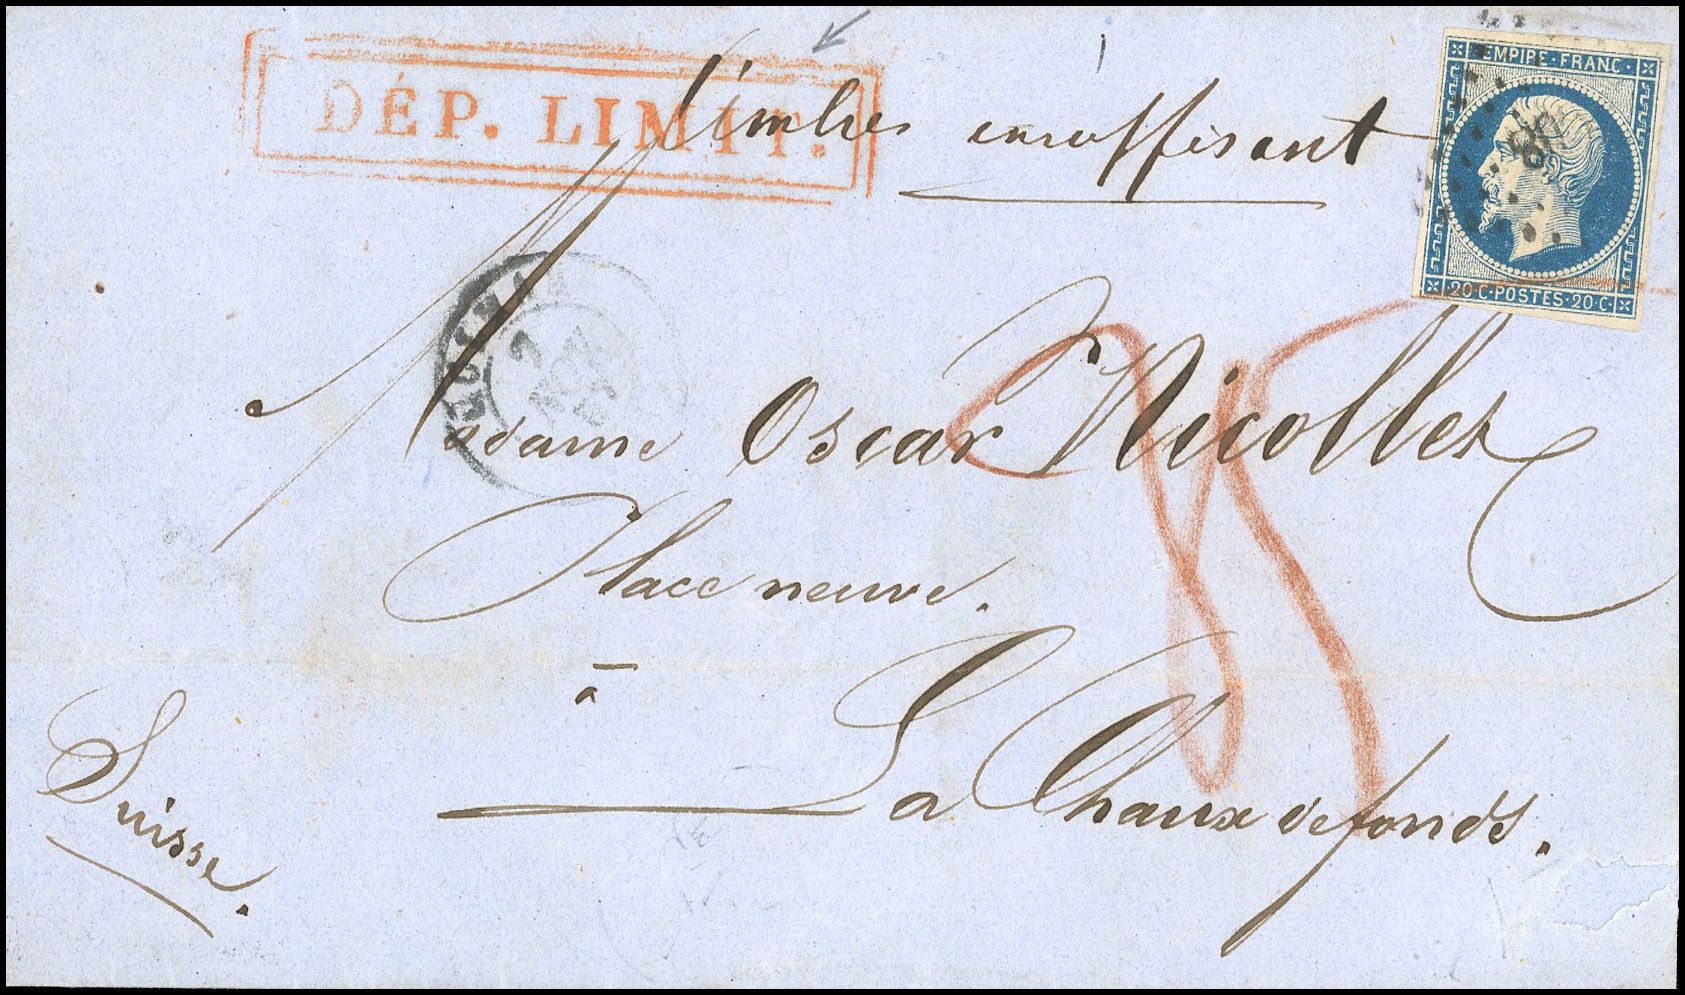 DÉP. LIMIT.
Timbre insuffisant
EMPIRE · FRANC ·
20 · C · POSTES · 20 · C ·
Madame Oscar Nicollet
Place neuve.
à
La Chaux de fonds.
Suisse.